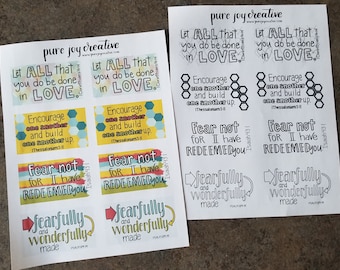 pure joy creative
Let ALL that
you do be done
in LOVE.
Let ALL that
you do be done
in LOVE.
Encourage
one another
and build
one another up.
Encourage
one another
and build
one another up.
Fear not
for I have
REDEEMED you
Fear not
for I have
REDEEMED you
fearfully
and
wonderfully
made
fearfully
and
wonderfully
made
pure joy creative
Let ALL that
you do be done
in LOVE.
Let ALL that
you do be done
in LOVE.
Encourage
one another
and build
one another up.
Encourage
one another
and build
one another up.
Fear not
for I have
REDEEMED you
Fear not
for I have
REDEEMED you
fearfully
and
wonderfully
made
fearfully
and
wonderfully
made